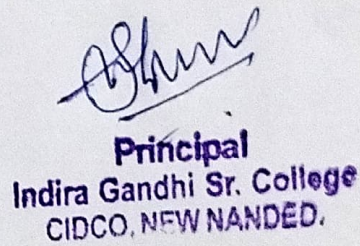 Principal
Indira Gandhi Sr. College
CIDCO, NEW NANDED.